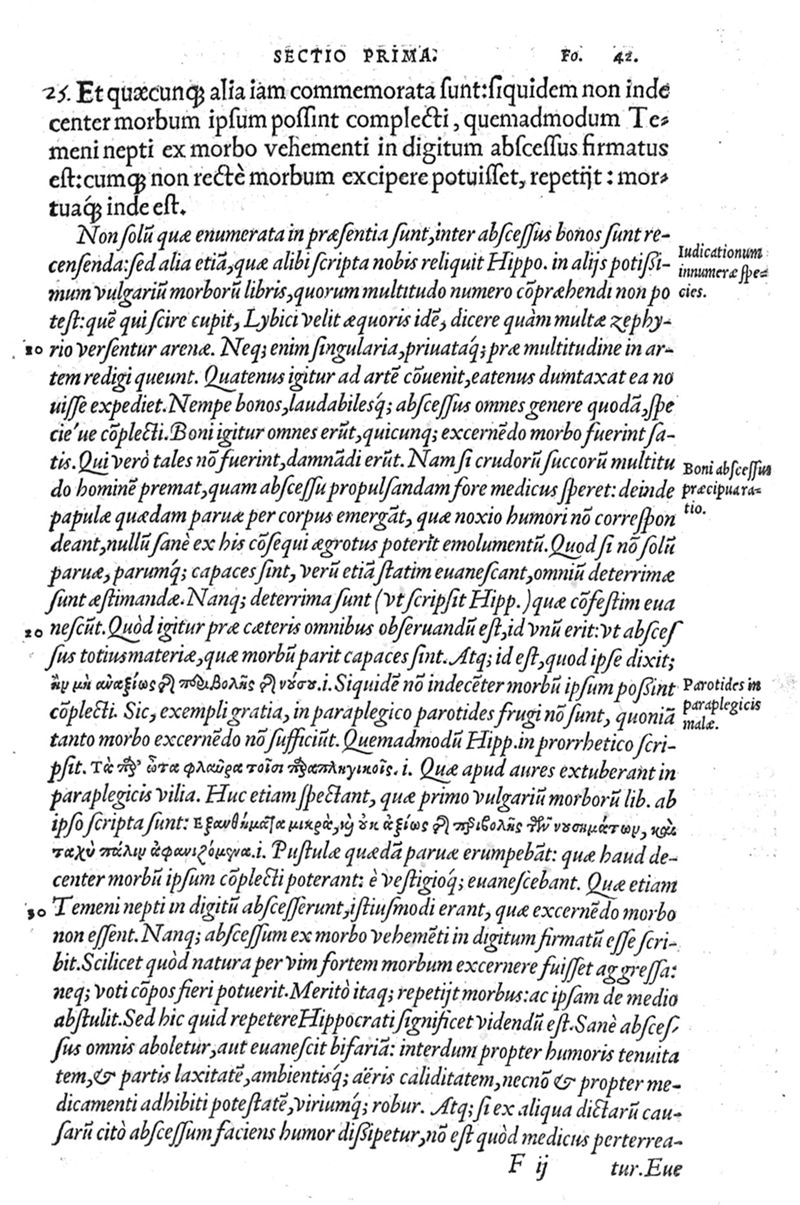 SECTIO PRIMA. Fo. 42.
25. Et quæcunq; alia iam commemorata ſunt:ſiquidem non inde
center morbum ipſum poſſint complecti, quemadmodum Te⸗
meni nepti ex morbo vehementi in digitum abſceſſus firmatus
eſt:cumq; non rectè morbum excipere potuiſſet, repetijt: mor⸗
tuaq́; inde eſt.
Non ſolũ quæ enumerata in præſentia ſunt,inter abſceſſus bonos ſunt re-
cenſenda:ſed alia etiã,quæ alibi ſcripta nobis reliquit Hippo. in alijs potiſſi-
Iudicationum
innumeræ ſpe⸗
cies.
mum vulgariũ morborũ libris,quorum multitudo numero cõpræhendi non po
teſt:quẽ qui ſcire cupit, Lybici velit æquoris idẽ, dicere quàm multæ zephy-
10 rio verſentur arenæ. Neq; enim ſingularia,priuataq́; præ multitudine in ar-
tem redigi queunt. Quatenus igitur ad artẽ cõuenit,eatenus dumtaxat ea no
uiſſe expediet.Nempe bonos,laudabilesq́; abſceſſus omnes genere quodã,ſpe
cie'ue cõplecti.Boni igitur omnes erũt,quicunq; excernẽdo morbo fuerint ſa-
tis.Qui verò tales nõ fuerint,damnãdi erũt. Nam ſi crudorũ ſuccorũ multitu
Boni abſceſſus
præcipua ra⸗
tio.
do hominẽ premat,quam abſceſſu propulſandam fore medicus ſperet: deinde
papulæ quædam paruæ per corpus emergãt, quæ noxio humori nõ correſpon
deant,nullũ ſanè ex his cõſequi ægrotus poterit emolumentũ.Quod ſi nõ ſolũ
paruæ, parumq́; capaces ſint, verũ etiã ſtatim euaneſcant,omniũ deterrimæ
ſunt æſtimandæ.Nanq; deterrima ſunt (vt ſcripſit Hipp.) quæ cõfeſtim eua
20 neſcũt.Quòd igitur præ cæteris omnibus obſeruandũ eſt,id vnũ erit:vt abſceſ
ſus totius materiæ,quæ morbũ parit capaces ſint. Atq; id eſt,quod ipſe dixit;
ἢν μὴ ἀναξίως τῆς περιβολῆς τῆς νόσου.i.Siquidẽ nõ indecẽter morbũ ipſum poſſint
Parotides in
paraplegicis
malæ.
cõplecti. Sic, exempli gratia, in paraplegico parotides frugi nõ ſunt, quoniã
tanto morbo excernẽdo nõ ſufficiũt. Quemadmodũ Hipp.in prorrhetico ſcri-
pſit. Τὰ παρ' ὦτα φλαῦρα τοῖσι παραπληγικοῖς. i. Quæ apud aures extuberant in
paraplegicis vilia. Huc etiam ſpectant, quæ primo vulgariũ morborũ lib. ab
ipſo ſcripta ſunt: Εξανθήματα μικρὰ, καὶ οὐκ ἀξίως τῆς περιβολῆς τῶν νουσημάτων, καὶ
ταχὺ πάλιν ἀφανιζόμενα.i. Puſtulæ quædã paruæ erumpebãt: quæ haud de-
center morbũ ipſum cõplecti poterant: è veſtigioq́; euaneſcebant. Quæ etiam
30 Temeni nepti in digitũ abſceſſerunt,iſtiuſmodi erant, quæ excernẽdo morbo
non eſſent. Nanq; abſceſſum ex morbo vehemẽti in digitum firmatũ eſſe ſcri-
bit.Scilicet quòd natura per vim fortem morbum excernere fuiſſet aggreſſa:
neq; voti cõpos fieri potuerit.Meritò itaq; repetijt morbus:ac ipſam de medio
abſtulit.Sed hic quid repetere Hippocrati ſignificet videndũ eſt.Sanè abſceſ⸗
ſus omnis aboletur,aut euaneſcit bifariã: interdum propter humoris tenuita
tem,& partis laxitatẽ,ambientisq́; aëris caliditatem,necnõ & propter me-
dicamenti adhibiti poteſtatẽ,viriumq́; robur. Atq; ſi ex aliqua dictarũ cau-
ſarũ citò abſceſſum faciens humor diſſipetur,nõ eſt quòd medicus perterrea-
F ij tur.Eue